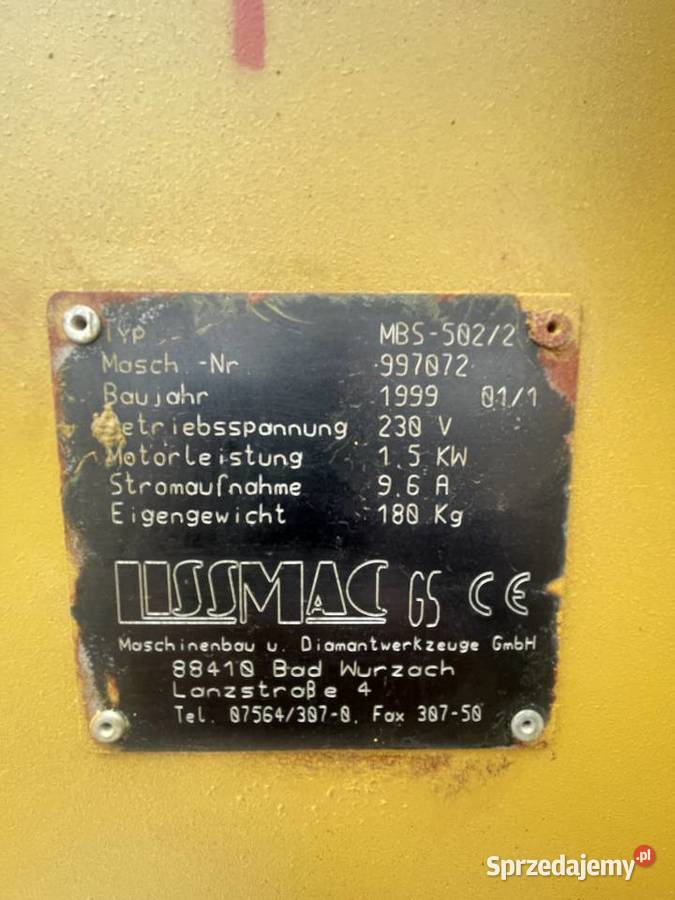 Typ MBS-502/2
Masch.-Nr 997072
Baujahr 1999 01/1
Betriebsspannung 230 V
Motorleistung 1.5 KW
Stromaufnahme 9.6 A
Eigengewicht 180 Kg
LISSMAC GS CE
Maschinenbau u. Diamantwerkzeuge GmbH
88410 Bad Wurzach
Lanzstraße 4
Tel. 07564/307-0, Fax 307-50
Sprzedajemy.pl